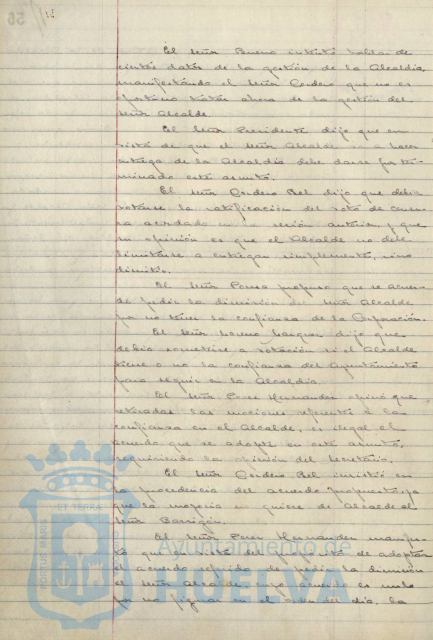 El Señor Bueno intentó hablar de
ciertos datos de la gestión de la Alcaldía,
manifestándo el Señor Cordero que no es
oportuno tratar ahora de la gestión del
Señor Alcalde.
El Señor Presidente dijo que en
vista de que el Señor Alcalde va a hacer
entrega de la Alcaldía debe darse por ter-
minado este asunto.
El Señor Cordero Bel dijo que debia
votarse la ratificación del voto de censu-
ra acordado en la sesión anterior, y que
su opinión es que el Alcalde no debe
limitarse a entregar simplemente, sino
dimitir.
El Señor propuso que se acuer-
de pedir la dimisión del Señor Alcalde
por no tener la confianza de la Corporación.
El Señor Moreno Marquez dijo que
debia someterse a votación si el Alcalde
tiene o no la confianza del Ayuntamiento
para seguir en la Alcaldía.
El Señor Perez Hernandez opinó que
retiradas las mociones referente a la
confianza en el Alcalde, es ilegal el
acuerdo que se adopte en este asunto,
requiriendo la opinión del Secretario.
El Señor Cordero Bel insistió en
la procedencia del acuerdo propuesto, ya
que la mayoria no quiere de Alcalde al
Señor Barrigón.
El Señor Perez Hernandez manifes-
tó que el del de adoptar
el acuerdo referido de pedir la dimisión
al Señor Alcalde, cuyo acuerdo es nulo
por no figurar en el orden del día, la
ET TERRAE
PORTUS MARIS
Ayuntamiento de
HUELVA